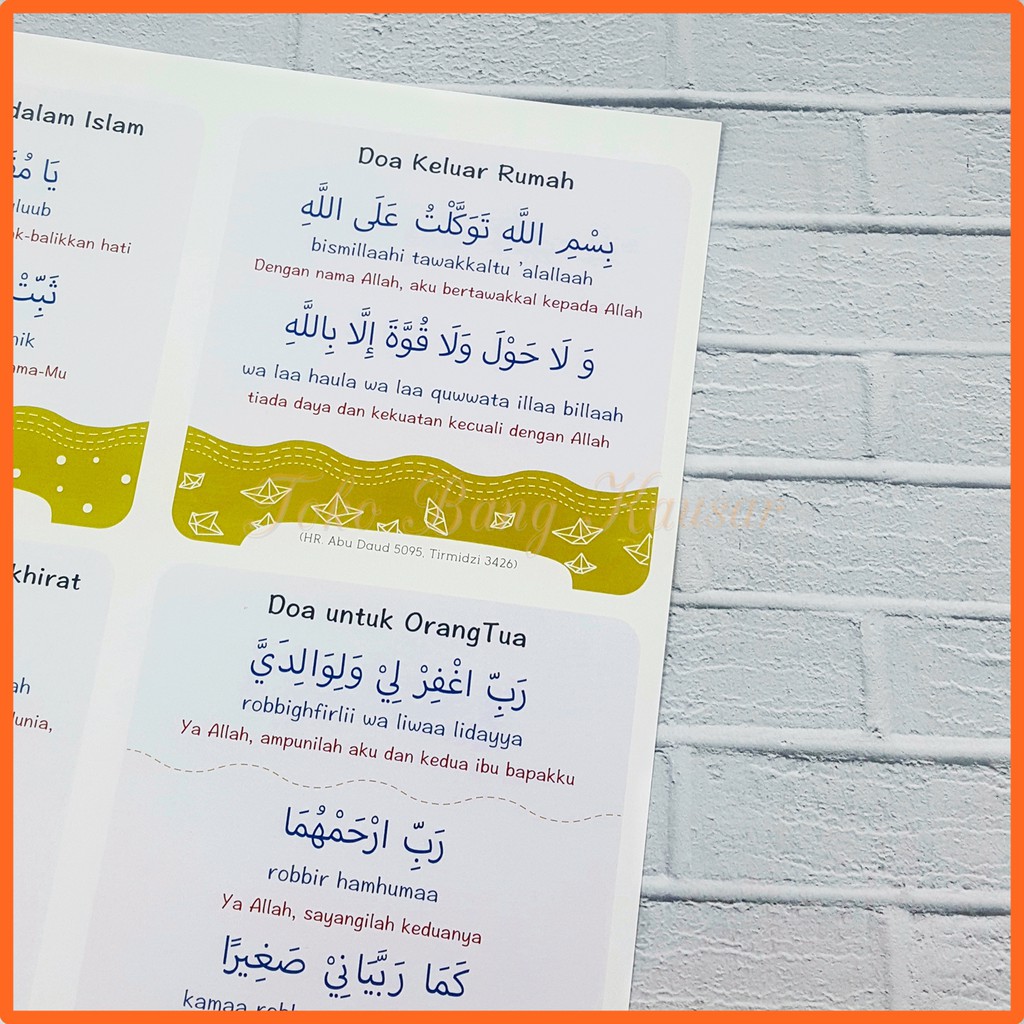 dalam Islam
يَا
k-balikkan hati
ثَبِّتْ
Doa Keluar Rumah
بِسْمِ اللَّهِ تَوَكَّلْتُ عَلَى اللَّهِ
bismillaahi tawakkaltu 'alallaah
Dengan nama Allah, aku bertawakkal kepada Allah
وَ لَا حَوْلَ وَلَا قُوَّةَ إِلَّا بِاللَّهِ
wa laa haula wa laa quwwata illaa billaah
tiada daya dan kekuatan kecuali dengan Allah
Toko Bang Kausar
(HR. Abu Daud 5095, Tirmidzi 3426)
khirat
Doa untuk OrangTua
رَبِّ اغْفِرْ لِيْ وَلِوَالِدَيَّ
robbighfirlii wa liwaa lidayya
Ya Allah, ampunilah aku dan kedua ibu bapakku
رَبِّ ارْحَمْهُمَا
robbir hamhumaa
Ya Allah, sayangilah keduanya
كَمَا رَبَّيَانِيْ صَغِيرًا
kamaa